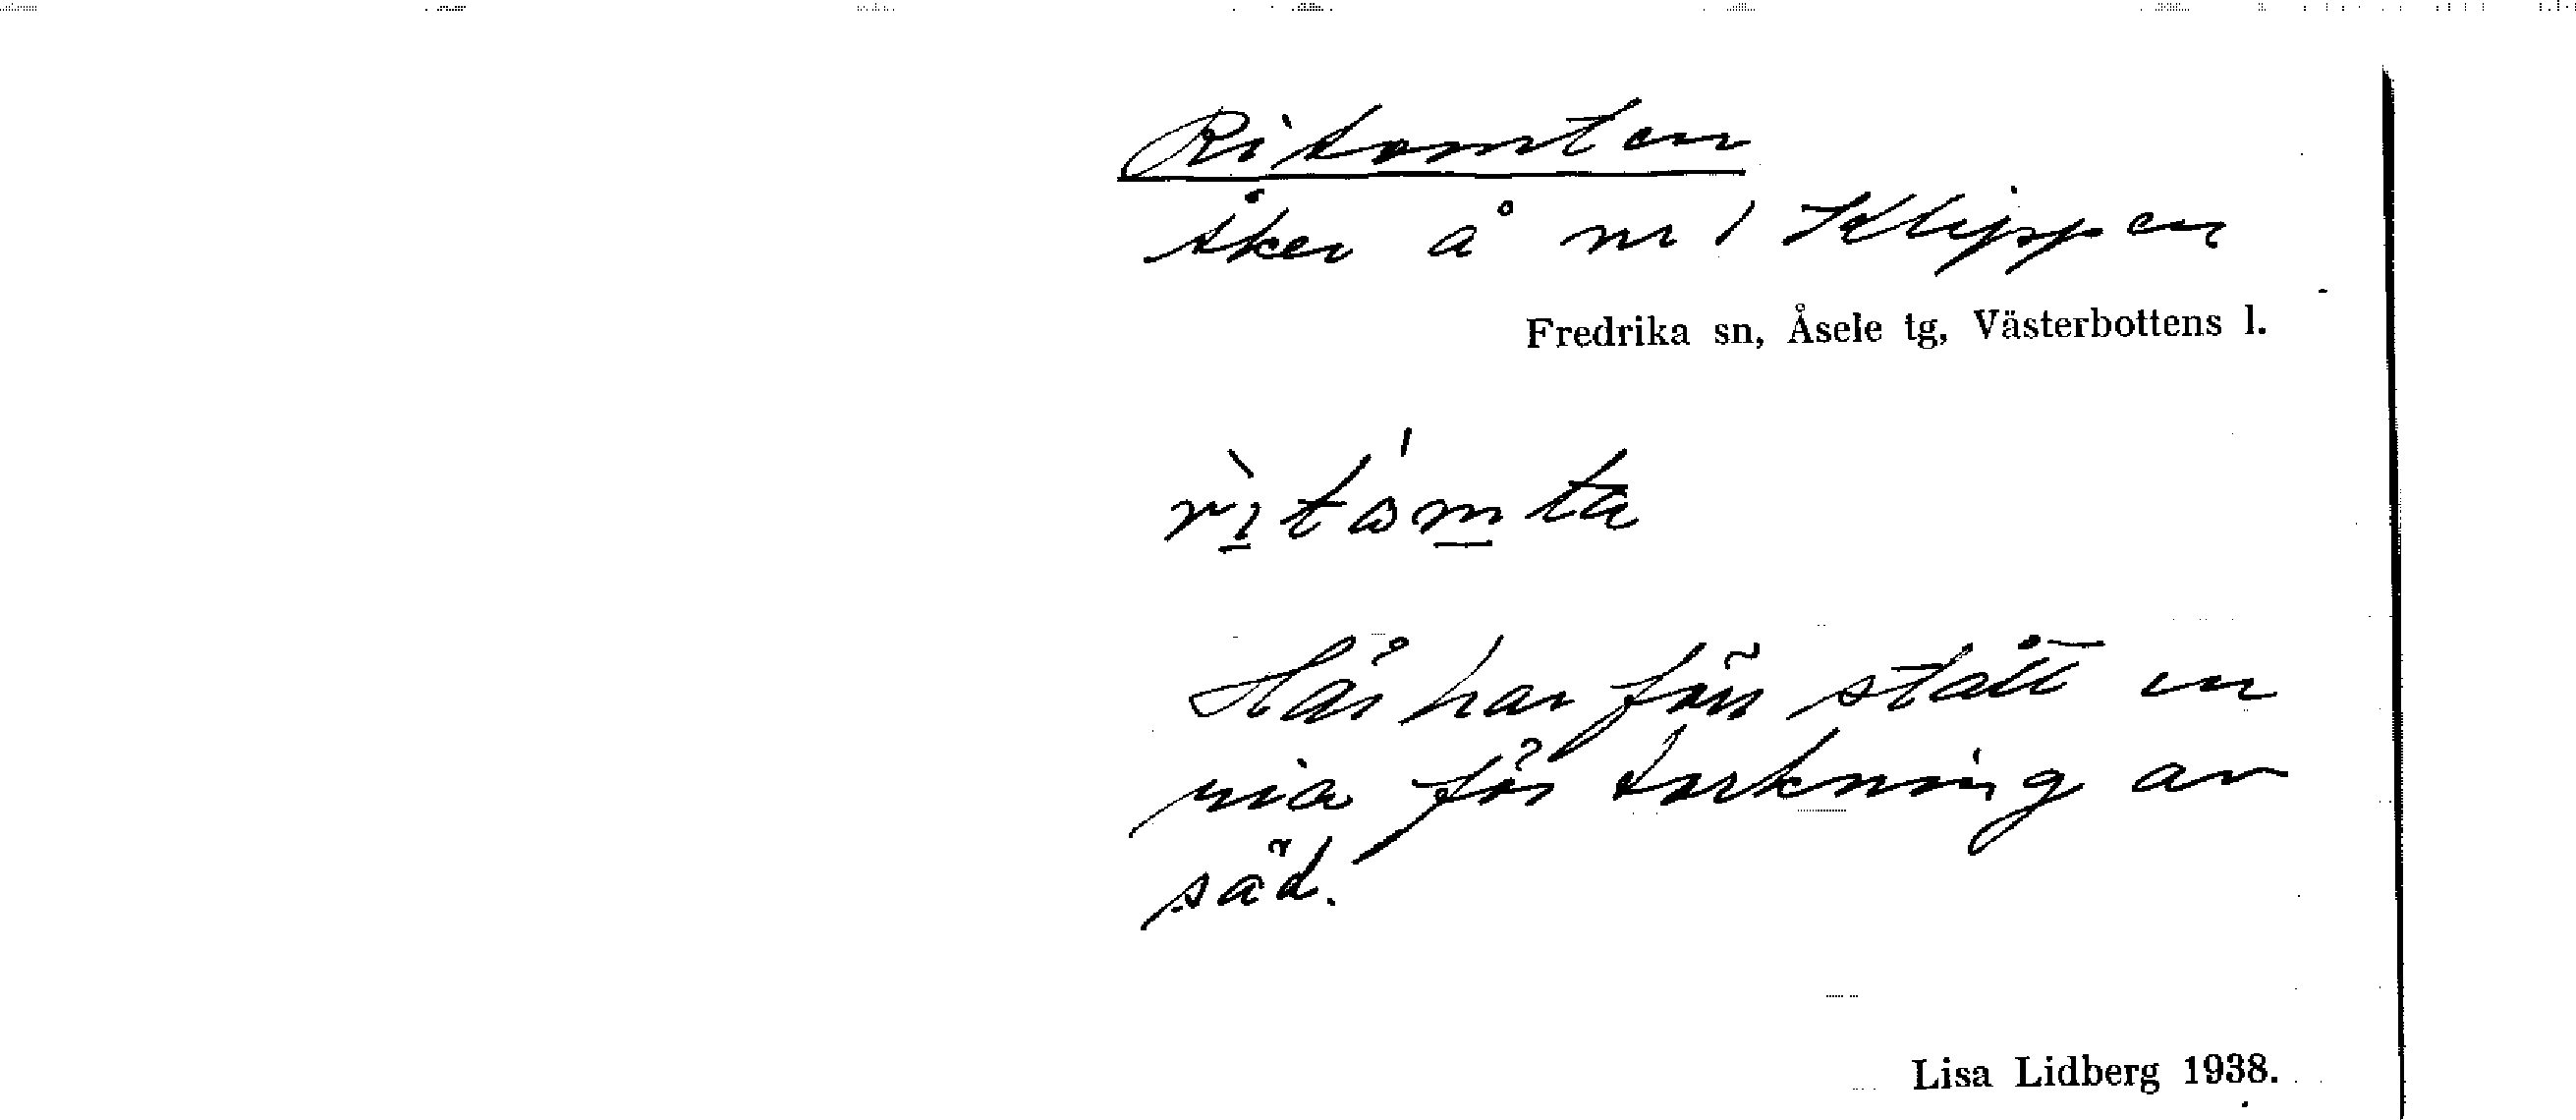 Ritomten
åker å nr 1 Klippen
Fredrika sn, Åsele tg, Västerbottens l.
rìtò́mta
Här har förr stått en
ria för torkning av
säd.
Lisa Lidberg 1938.